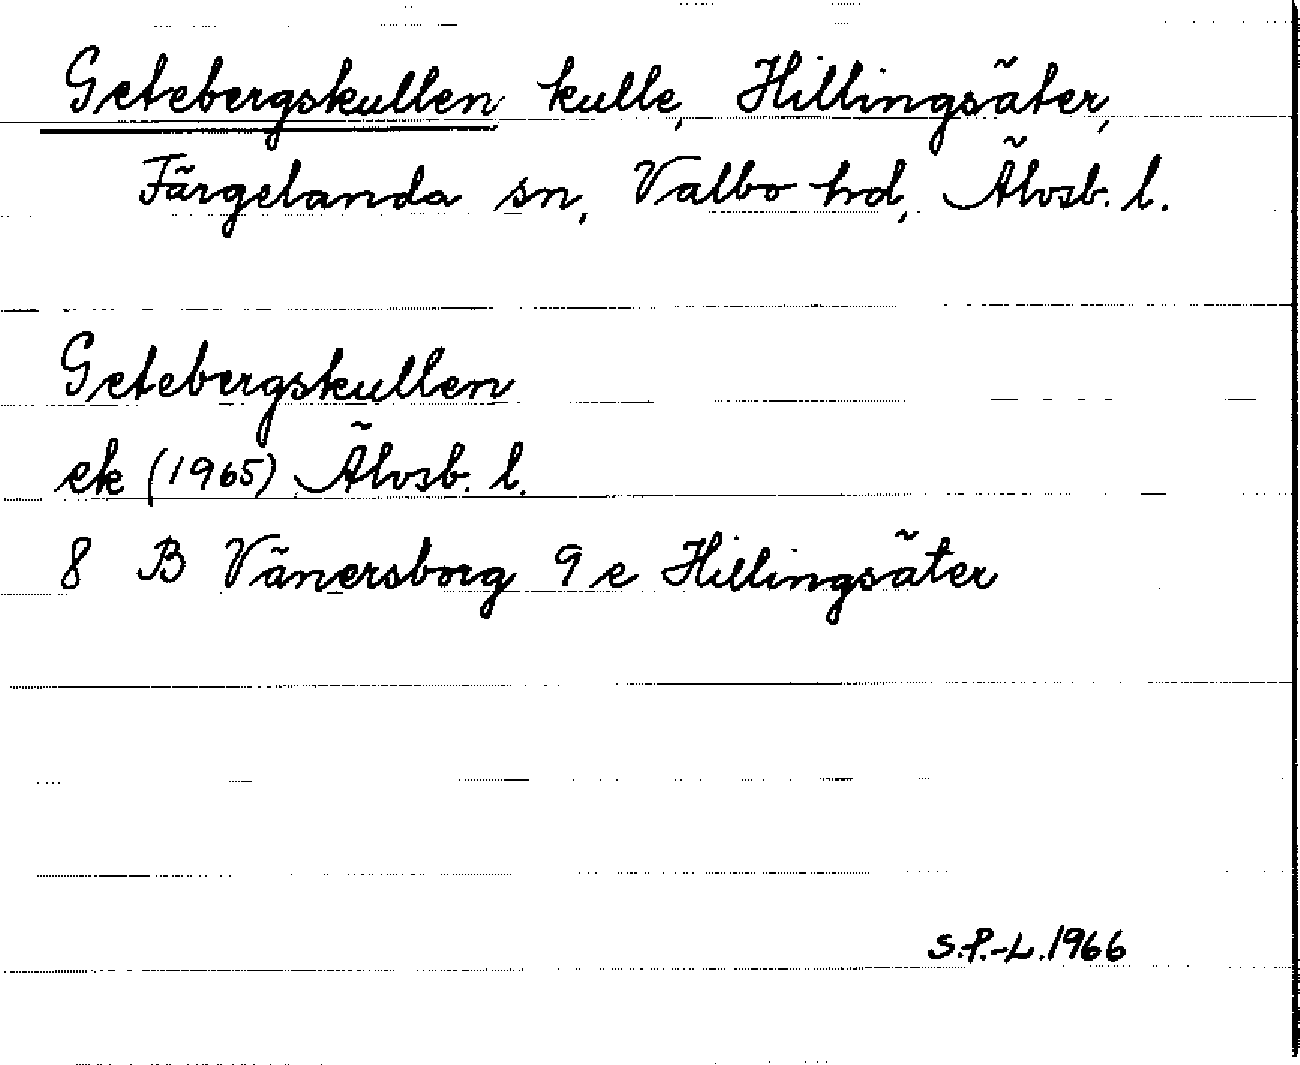 Getebergskullen kulle, Hillingsäter,
Färgelanda sn, Valbo hd, Älvsb. l.
Getebergskullen
ek (1965) Älvsb. l.
8 B Vänersborg 9 e Hillingsäter
S.P.-L. 1966